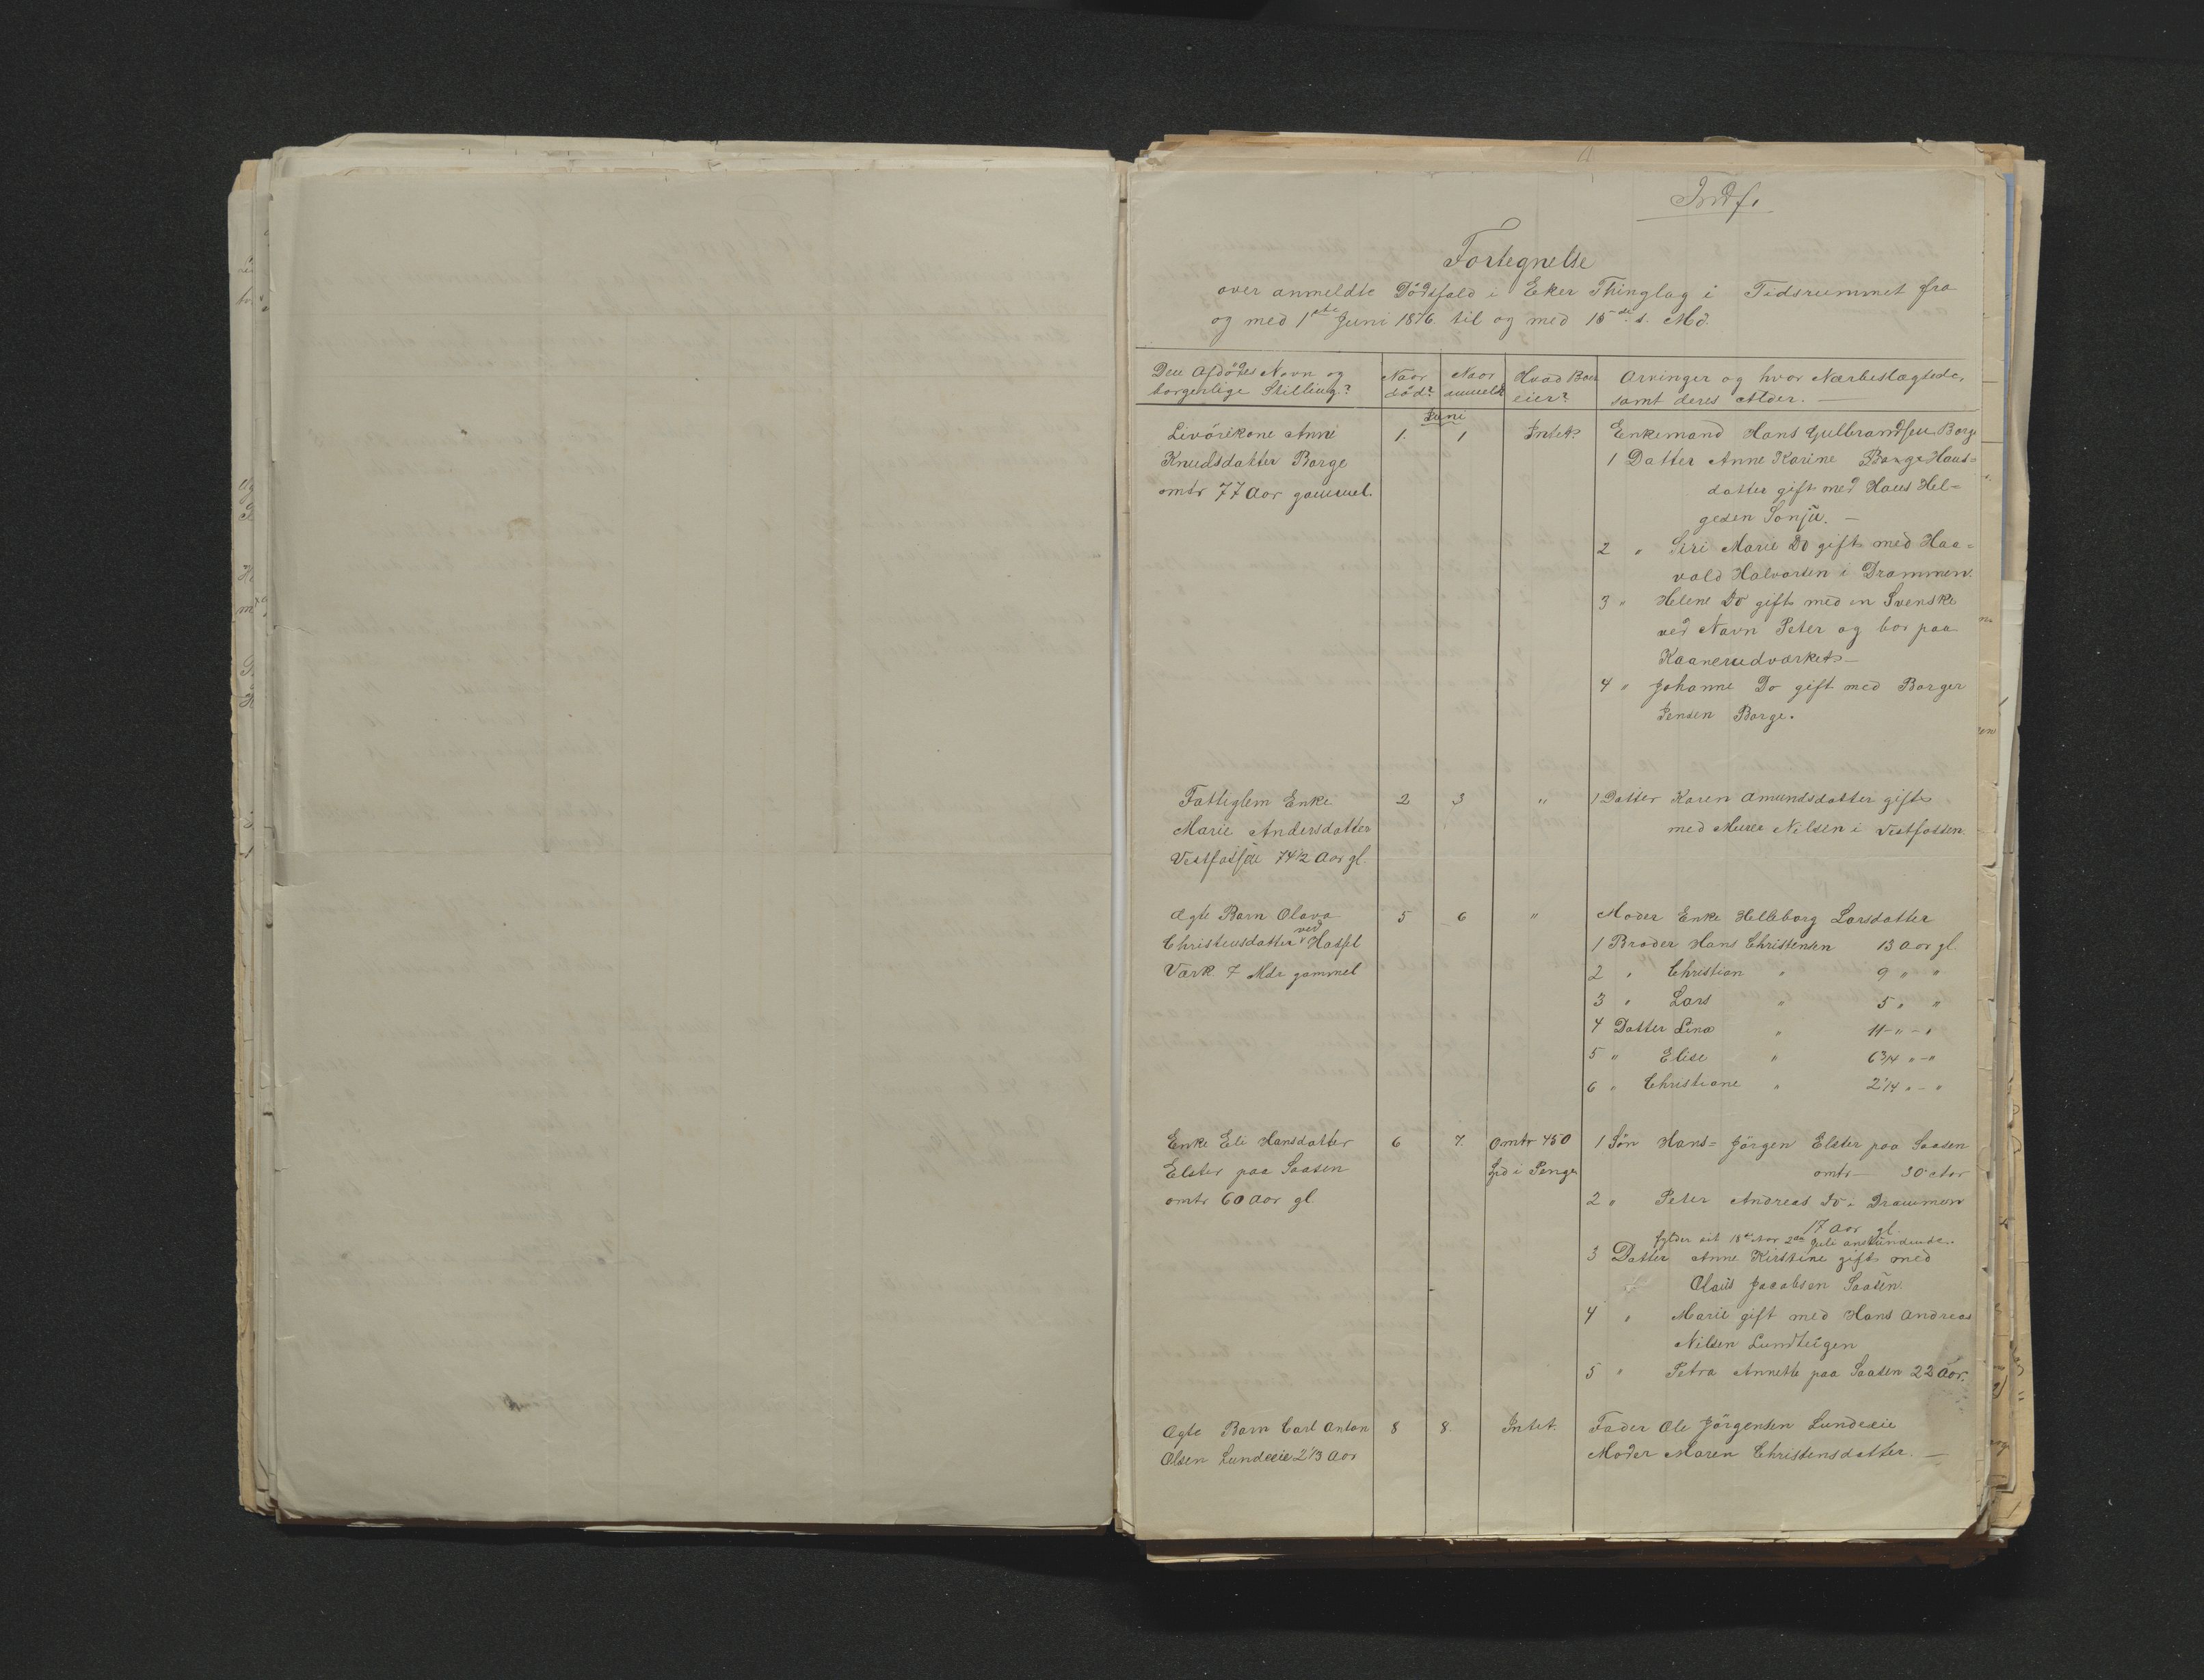 Indf.
Fortegnelse
over anmeldte Dödsfald i Eker Thinglag i Tidsrummet fra
og med 1ste Juni 1876 til og med 15de s. Md.
Den Afdödes Navn og
borgerlige Stilling?
Naar
död?
Naar
anmeldt
Hvad Boet
eier?
Arvinger og hvor Nærbeslægtede,
samt deres Alder. —
Juni
Livörekone Anne
Knudsdatter Borge
omtr 77 Aar gammel.
1.
1
Intet.
Enkemand Hans Gulbrandsen Borge
1 Datter Anne Karine Borge Hans=
datter gift med Hans Hel=
gesen Sonju. —
2 " Siri Marie Do gift med Haa=
vald Halvorsen i Drammen.
3 " Helene Do gift med en Svenske
ved Navn Peter og bor paa
Kaanerudværket —
4 " Johanne Do gift med Borger
Jensen Borge.
Fattiglem Enke
Marie Andersdatter
Vestfossen 74 1/2 Aar gl.
2
3
"
1 Datter Karen Amundsdatter gift
med Murer Nilsen i Vestfossen.
Ægte Barn Olava
Christensdatter ved Hassel
Værk 7 Mdr gammel
5
6
"
Moder Enke Helleborg Larsdatter
1 Broder Hans Christensen 13 Aar gl.
2 " Christian " 9 " "
3 " Lars " 5 " "
4 Datter Lina " 11 - " - "
5 " Elise " 6 3/4 " - "
6 " Christiane " 2 1/4 " - "
Enke Eli Hansdatter
Elster paa Saasen
omtr 60 Aar gl.
6
7.
Omtr 450
Spd i Penge
1 Sön Hans= Jörgen Elster paa Saasen
omtr — 30 Aar
2 " Peter Andreas Do i Drammen
17 Aar gl.
fylder sit 18de Aar 2den Juli anstundende.
3 Datter Anne Kirstine gift med
Olaus Jacobsen Saasen.
4 " Marie gift med Hans Andreas
Nilsen Lundteigen
5 " Petra Annette paa Saasen 22 Aar.
Ægte Barn Carl Anton
Olsen Lundeeie 2 1/3 Aar
8
8.
Intet.
Fader Ole Jörgensen Lundeeie
Moder Maren Christensdatter. —